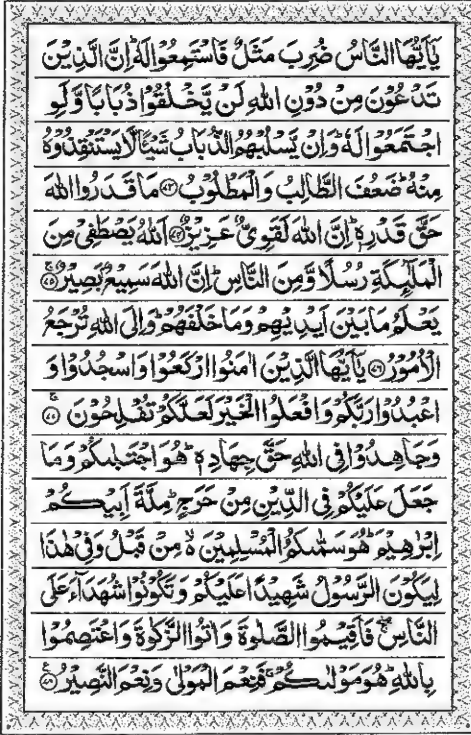 يٰۤاَيُّهَا النَّاسُ ضُرِبَ مَثَلٌ فَاسْتَمِعُوْا لَهٗ ؕ اِنَّ الَّذِيْنَ
تَدْعُوْنَ مِنْ دُوْنِ اللّٰهِ لَنْ يَّخْلُقُوْا ذُبَابًا وَّلَوِ
اجْتَمَعُوْا لَهٗ ؕ وَاِنْ يَّسْلُبْهُمُ الذُّبَابُ شَيْـًٔا لَّا يَسْتَنْقِذُوْهُ
مِنْهُ ؕ ضَعُفَ الطَّالِبُ وَالْمَطْلُوْبُ ﴿۷۳﴾ مَا قَدَرُوا اللّٰهَ
حَقَّ قَدْرِهٖ ؕ اِنَّ اللّٰهَ لَقَوِىٌّ عَزِيْزٌ ﴿۷۴﴾ اَللّٰهُ يَصْطَفِىْ مِنَ
الْمَلٰٓئِكَةِ رُسُلًا وَّمِنَ النَّاسِ ؕ اِنَّ اللّٰهَ سَمِيْعٌۢ بَصِيْرٌ ﴿۷۵﴾
يَعْلَمُ مَا بَيْنَ اَيْدِيْهِمْ وَمَا خَلْفَهُمْ ؕ وَاِلَى اللّٰهِ تُرْجَعُ
الْاُمُوْرُ ﴿۷۶﴾ يٰۤاَيُّهَا الَّذِيْنَ اٰمَنُوا ارْكَعُوْا وَاسْجُدُوْا وَ
اعْبُدُوْا رَبَّكُمْ وَافْعَلُوا الْخَيْرَ لَعَلَّكُمْ تُفْلِحُوْنَ ﴿۷۷﴾
وَجَاهِدُوْا فِى اللّٰهِ حَقَّ جِهَادِهٖ ؕ هُوَ اجْتَبٰىكُمْ وَمَا
جَعَلَ عَلَيْكُمْ فِى الدِّيْنِ مِنْ حَرَجٍ ؕ مِلَّةَ اَبِيْكُمْ
اِبْرٰهِيْمَ ؕ هُوَ سَمّٰٮكُمُ الْمُسْلِمِيْنَ ۙ مِنْ قَبْلُ وَفِىْ هٰذَا
لِيَكُوْنَ الرَّسُوْلُ شَهِيْدًا عَلَيْكُمْ وَتَكُوْنُوْا شُهَدَآءَ عَلَى
النَّاسِ ۖۚ فَاَقِيْمُوا الصَّلٰوةَ وَاٰتُوا الزَّكٰوةَ وَاعْتَصِمُوْا
بِاللّٰهِ ؕ هُوَ مَوْلٰٮكُمْ ۚ فَنِعْمَ الْمَوْلٰى وَنِعْمَ النَّصِيْرُ ﴿۷۸﴾